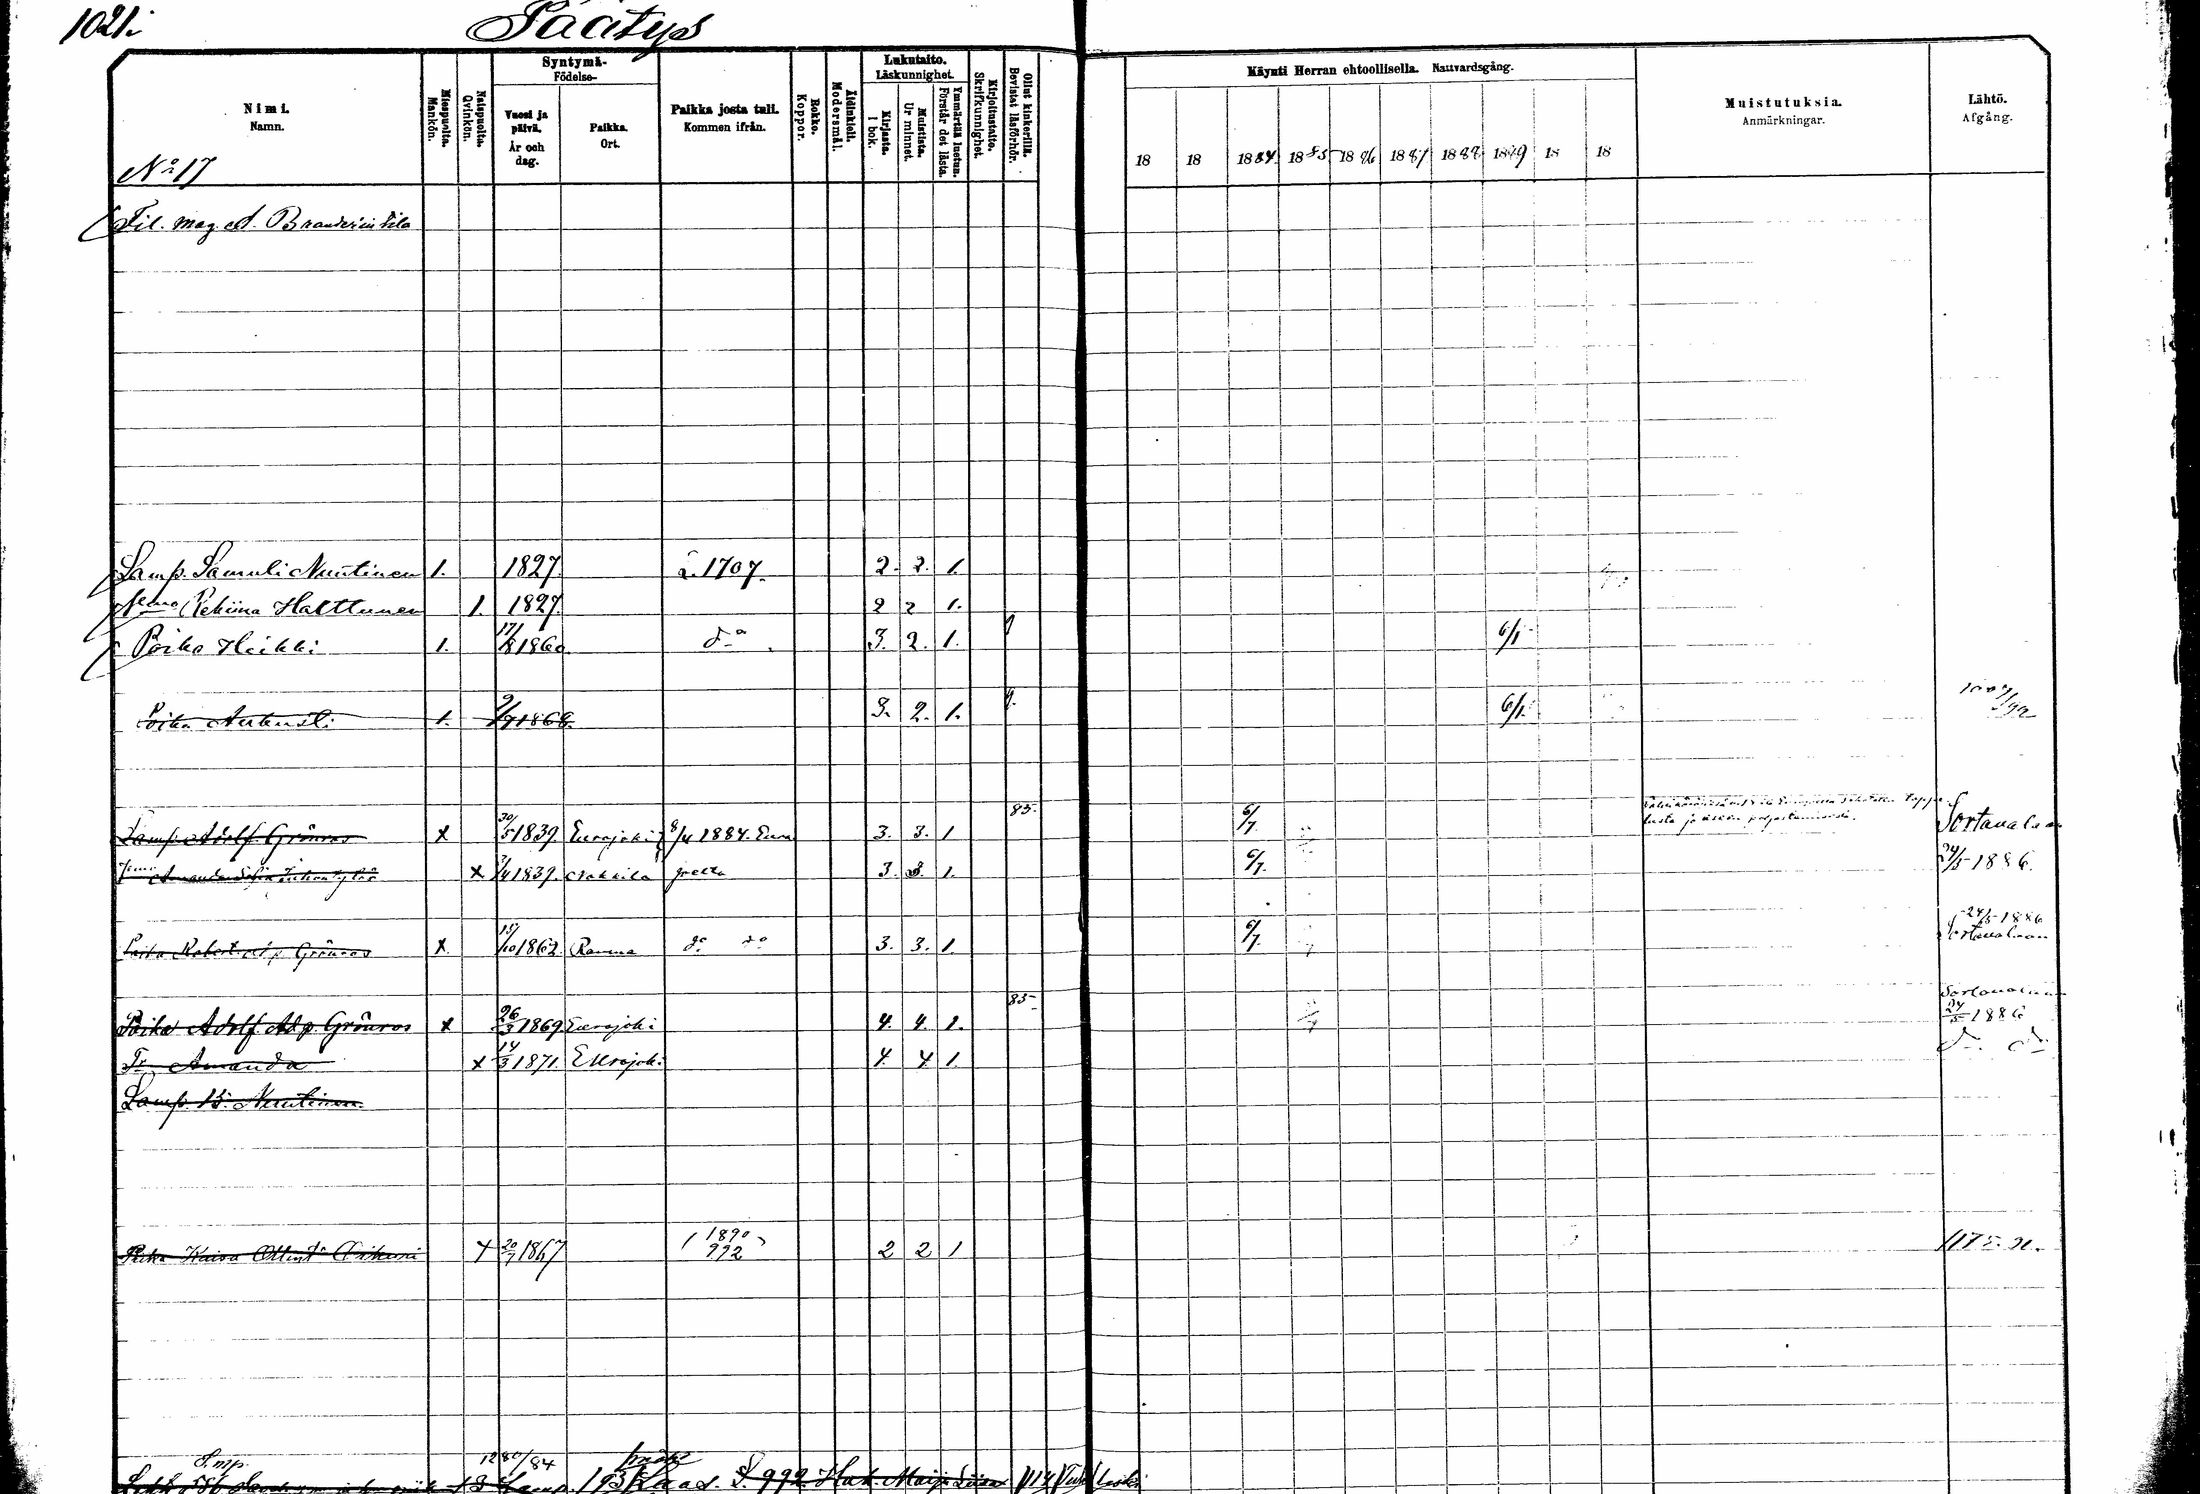 1021.
Päätys
Nimi.
Namn.
Miespuolta.
Mankön.
Naispuolta.
Qvinkön.
Syntymä-
Födelse-
Vuosi ja päivä.
År och dag.
Paikka.
Ort.
Paikka josta tuli.
Kommen ifrån.
Rokko.
Koppor.
Äidinkieli.
Modersmål.
Lukutaito.
Läskunnighet.
Kirjasta.
I bok.
Muistista.
Ur minnet.
Ymmärtää luetun.
Förstår det lästa.
Kirjoitustaito.
Skrifkunnighet.
Ollut kinkerillä.
Bevistat läsförhör.
Käynti Herran ehtoollisella. Nattvardsgång.
18 18 1884 1885 1886 1887 1888 1889 18 18
Muistutuksia.
Anmärkningar.
Lähtö.
Afgång.
No 17
Fil. mag. A. Branderin tila
Lamp. Samuli Nuutinen 1. 1827. S. 1707. 2. 2. 1.
Wmo Rekiina Halttunen 1. 1827. 2 2 1.
Poika Heikki 1. 17/8 1860 do 3. 2. 1. 6/1
Poika Aukusti 1. 9/9 1868. 3. 2. 1. 6/1.
Lamp. Adolf Grönros x 30/5 1839. Eurajoki 8/4 1884. Eura 3. 3. 1 83. 6/7. Sortavalaan
Amanda Sofia x 1839. Nakkila joelta 3. 3. 1. 6/7. 24/5 1886.
Poika Robert Ap. Grönros x. 15/10 1862. Rauma do do 3. 3. 1. 6/7. 24/5 1886 Sortavalaan
Poika Adolf Adp. Grönros x 26/3 1869. Eurajoki 4. 4. 1. 83- Sortavalaan 24/5 1886
Tr Amanda x 14/3 1871. Eurajoki 4. 4 1. do do
Lamp. B. Nuutinen.
Kaisa x 20/7 1867 1890 992 2 2 1 1175.
Smp. 1280/84
S. 992. Maija Liisa